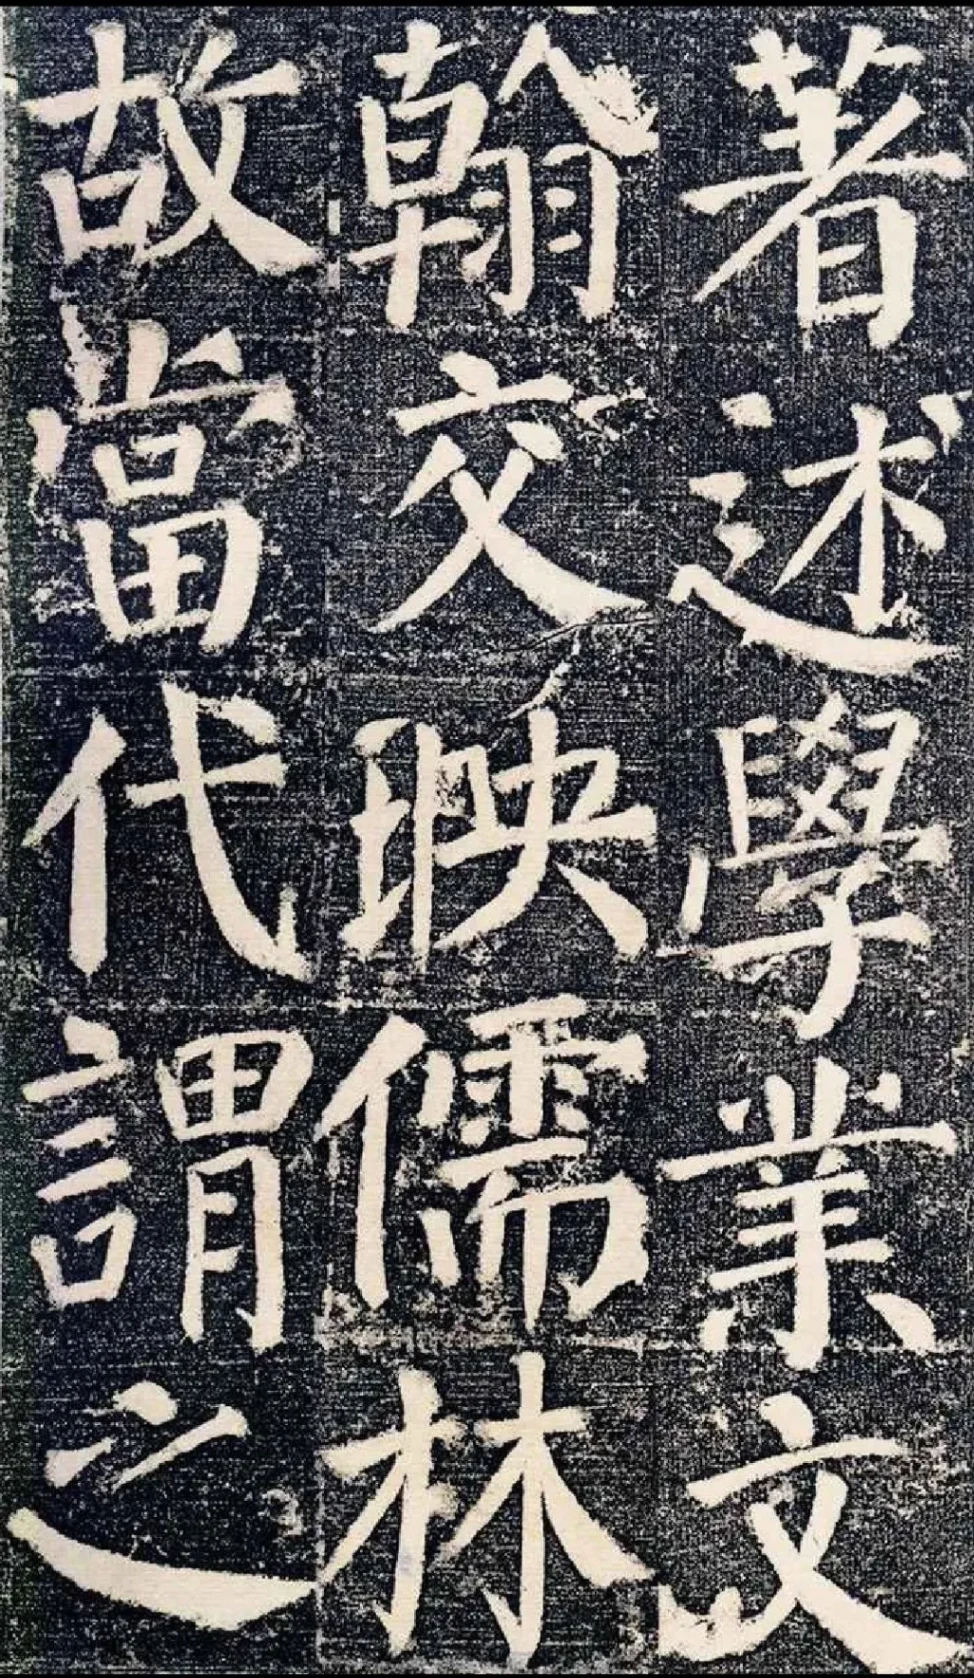 著述學業文
翰交映儒林
故當代謂之